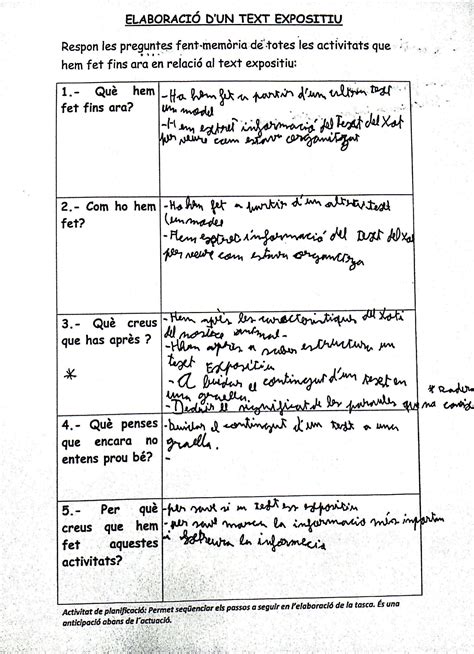 ELABORACIÓ D'UN TEXT EXPOSITIU
Respon les preguntes fent memòria de totes les activitats que
hem fet fins ara en relació al text expositiu:
1.- Què hem
fet fins ara?
-Ho hem fet a partir d'un altre text
un model
-Hem extret informació del Text del Xot
per veure com estava organitzat
2.- Com ho hem
fet?
-Ho hem fet a partir d'un altre text
(un model
-Hem extret informació del Text del Xot
per veure com estava organitza
3.- Què creus
que has après ?
*
-Hem après les característiques del Xoti
del nostre animal-
-Hem après a saber estructura un
text Expositiu
-A buidar el contingut d'un text en
una graella.
-Deduir el significat de les paraules que no coneix
*
4.- Què penses
que encara no
entens prou bé?
-Buidar el contingut d'un text a una
graella.
-
5.- Per què
creus que hem
fet aquestes
activitats?
-per saber si un text es expositiu
-per saber marcar la informació més important
i la informacio
Activitat de planificació: Permet seqüenciar els passos a seguir en l'elaboració de la tasca. És una
anticipació abans de l'actuació.